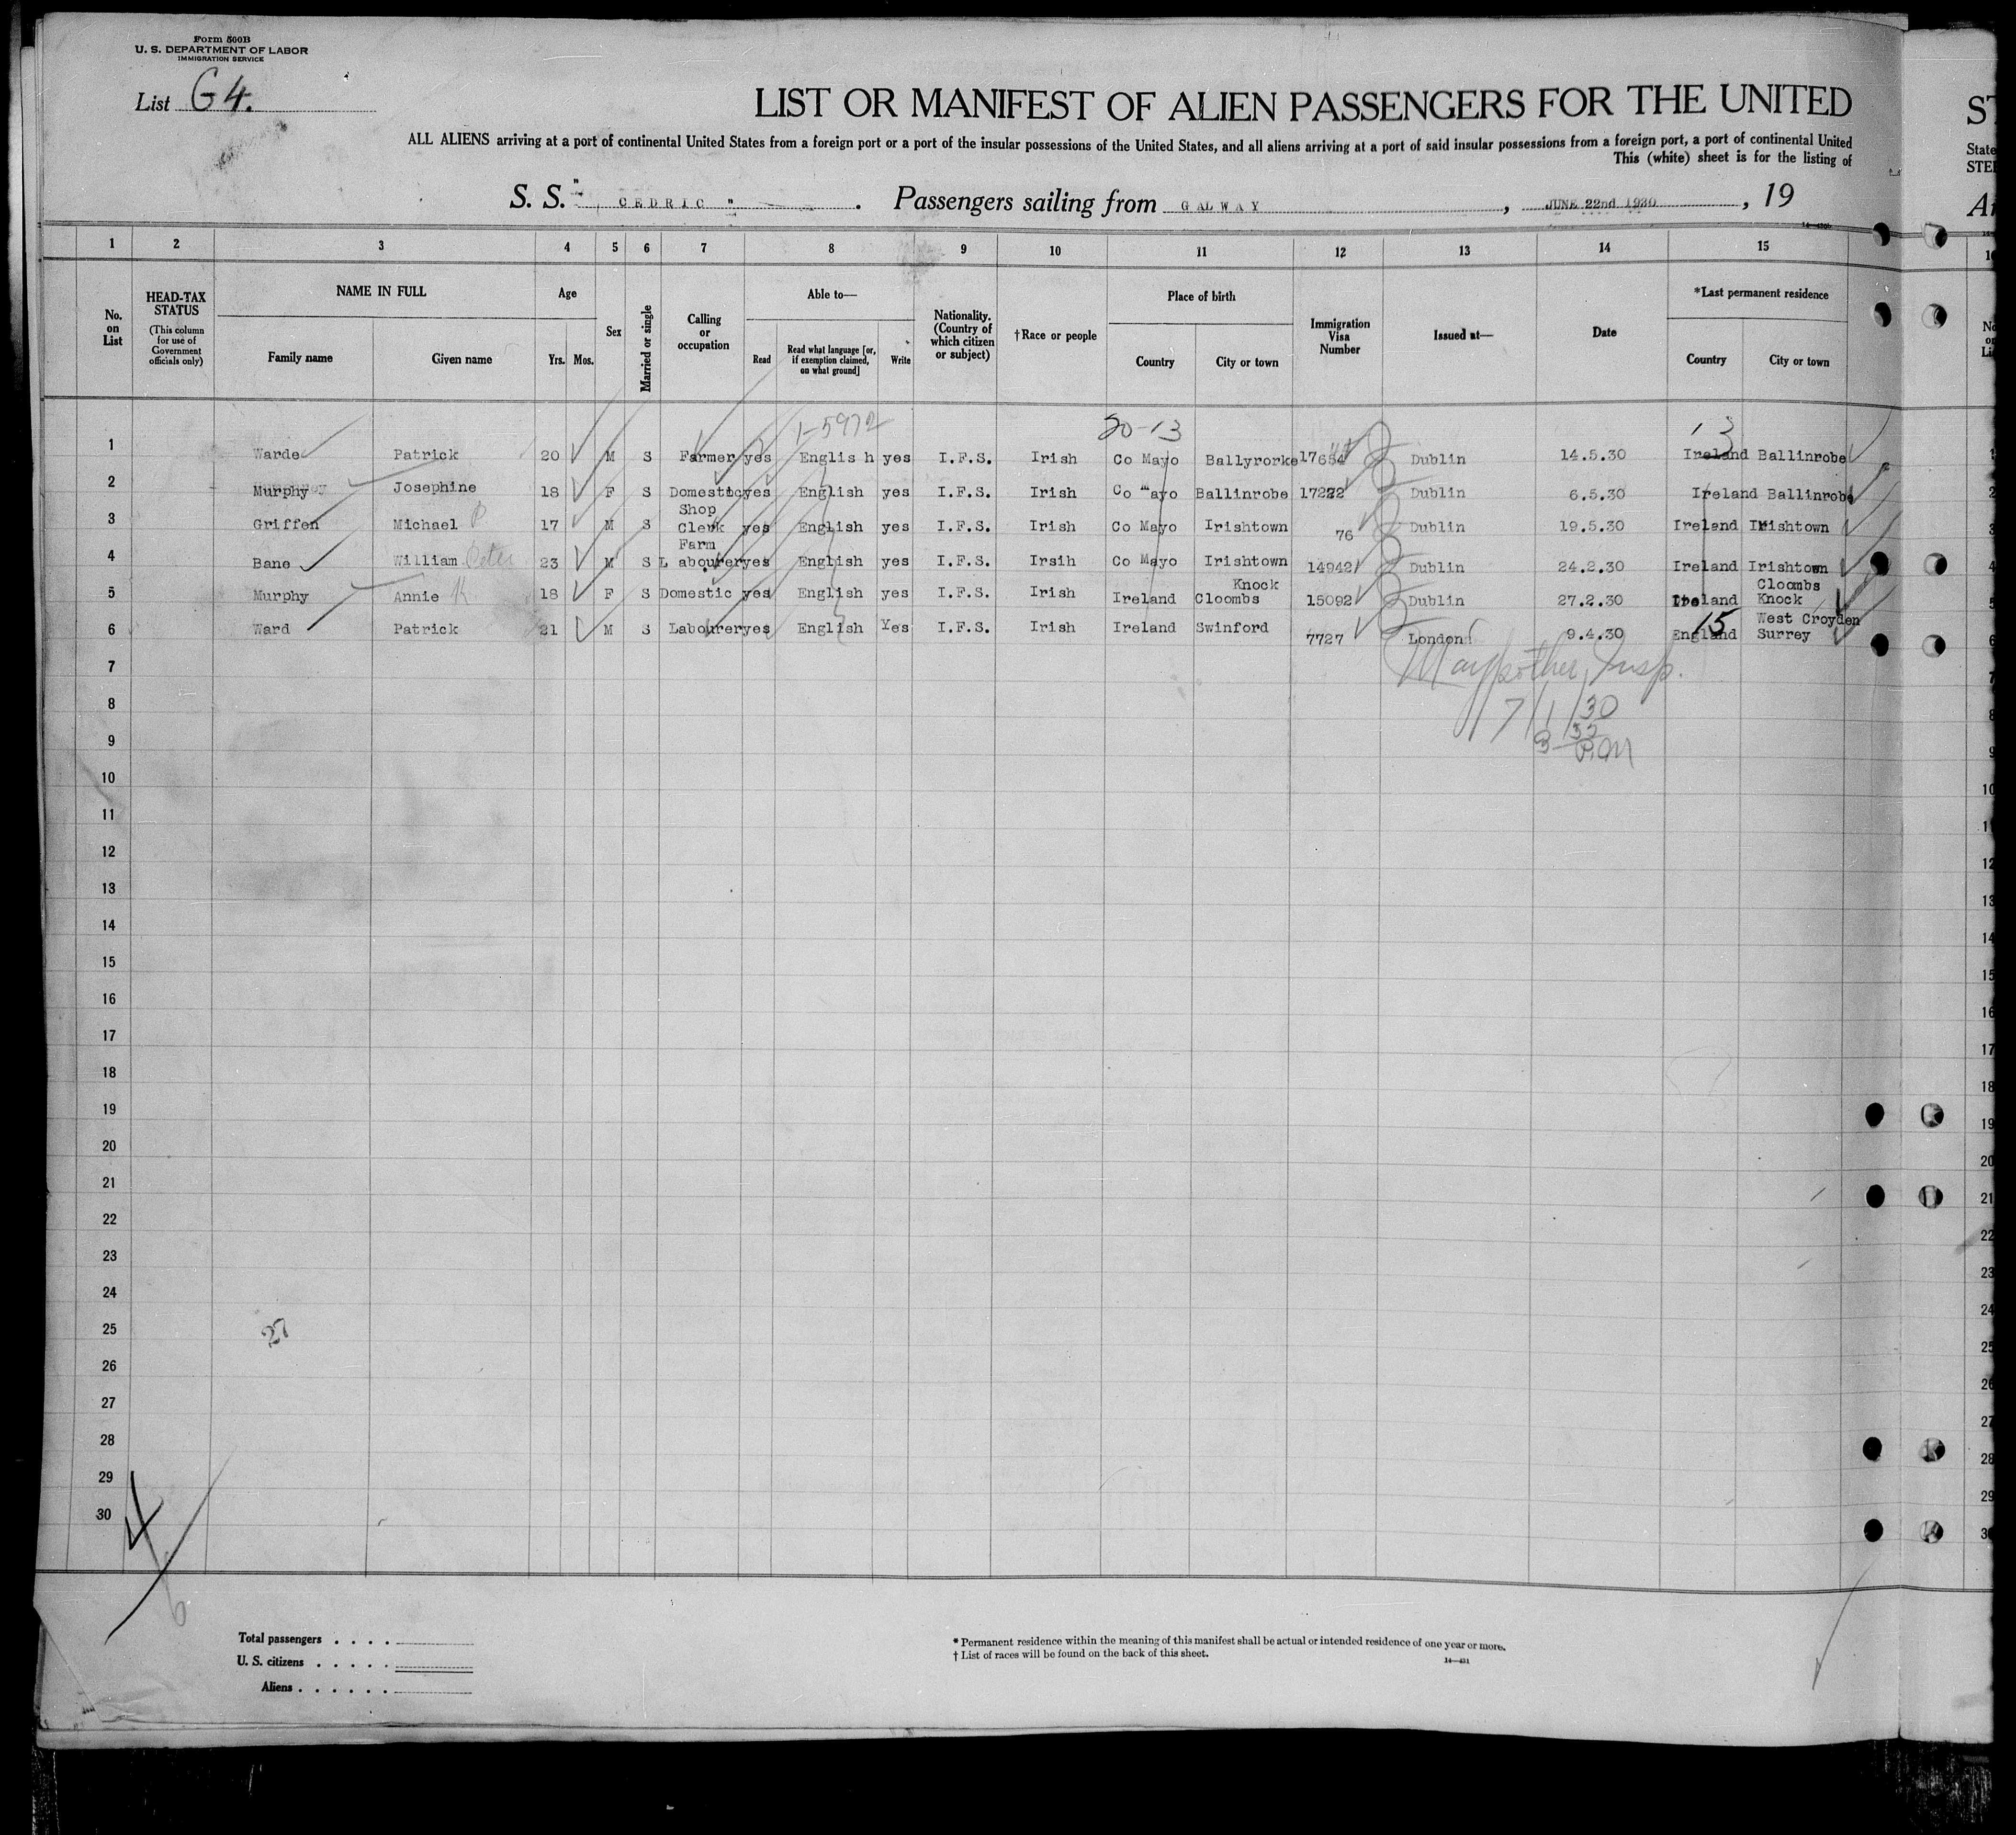 Form 500B
U. S. DEPARTMENT OF LABOR
IMMIGRATION SERVICE
List G4.
LIST OR MANIFEST OF ALIEN PASSENGERS FOR THE UNITED
ST
ALL ALIENS arriving at a port of continental United States from a foreign port or a port of the insular possessions of the United States, and all aliens arriving at a port of said insular possessions from a foreign port, a port of continental United
State
This (white) sheet is for the listing of
STE
S. S. " CEDRIC " . Passengers sailing from GALWAY , JUNE 22nd 1930 , 19
1 2 3 4 5 6 7 8 9 10 11 12 13 14 15
No. on List
HEAD-TAX STATUS
(This column for use of Government officials only)
NAME IN FULL
Family name Given name
Age
Yrs. Mos.
Sex
Married or single
Calling or occupation
Able to—
Read Read what language [or, if exemption claimed, on what ground] Write
Nationality. (Country of which citizen or subject)
†Race or people
Place of birth
Country City or town
Immigration Visa Number
Issued at—
Date
*Last permanent residence
Country City or town
1-5972 20-13 13
1 Warde Patrick 20 M S Farmer yes Englis h yes I.F.S. Irish Co Mayo Ballyrorke 17654 Dublin 14.5.30 Ireland Ballinrobe
2 Murphy Josephine 18 F S Domestic yes English yes I.F.S. Irish Co Mayo Ballinrobe 17222 Dublin 6.5.30 Ireland Ballinrobe
3 Griffen Michael P 17 M S Shop Clerk yes English yes I.F.S. Irish Co Mayo Irishtown 76 Dublin 19.5.30 Ireland Irishtown
4 Bane William Peter 23 M S Farm L abourer yes English yes I.F.S. Irsih Co Mayo Irishtown 14942 Dublin 24.2.30 Ireland Irishtown
5 Murphy Annie K 18 F S Domestic yes English yes I.F.S. Irish Ireland Knock Cloombs 15092 Dublin 27.2.30 Ireland Cloombs Knock
6 Ward Patrick 21 M S Labourer yes English Yes I.F.S. Irish Ireland Swinford 7727 London 9.4.30 15 England West Croyden Surrey
7
Insp.
8
7/1/30
9
10
11
12
13
14
15
16
17
18
19
20
21
22
23
24
25
27
26
27
28
29
30
4
6
Total passengers . . . .
U. S. citizens . . . . .
Aliens . . . . . .
* Permanent residence within the meaning of this manifest shall be actual or intended residence of one year or more.
† List of races will be found on the back of this sheet.
14—431